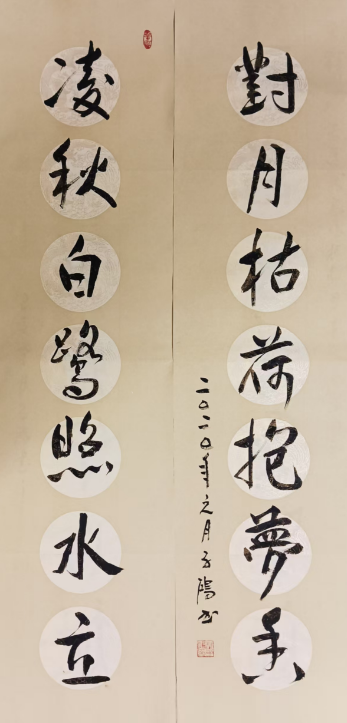 對月枯荷抱夢香
二〇二〇年元月
凌秋白鷺照水立